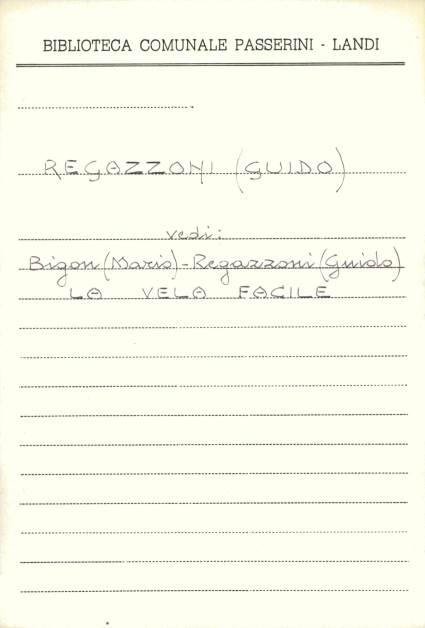 BIBLIOTECA COMUNALE PASSERINI - LANDI
REGAZZONI (GUIDO)
vedi:
Bigon (Mario) - Regazzoni (Guido)
LA VELA FACILE